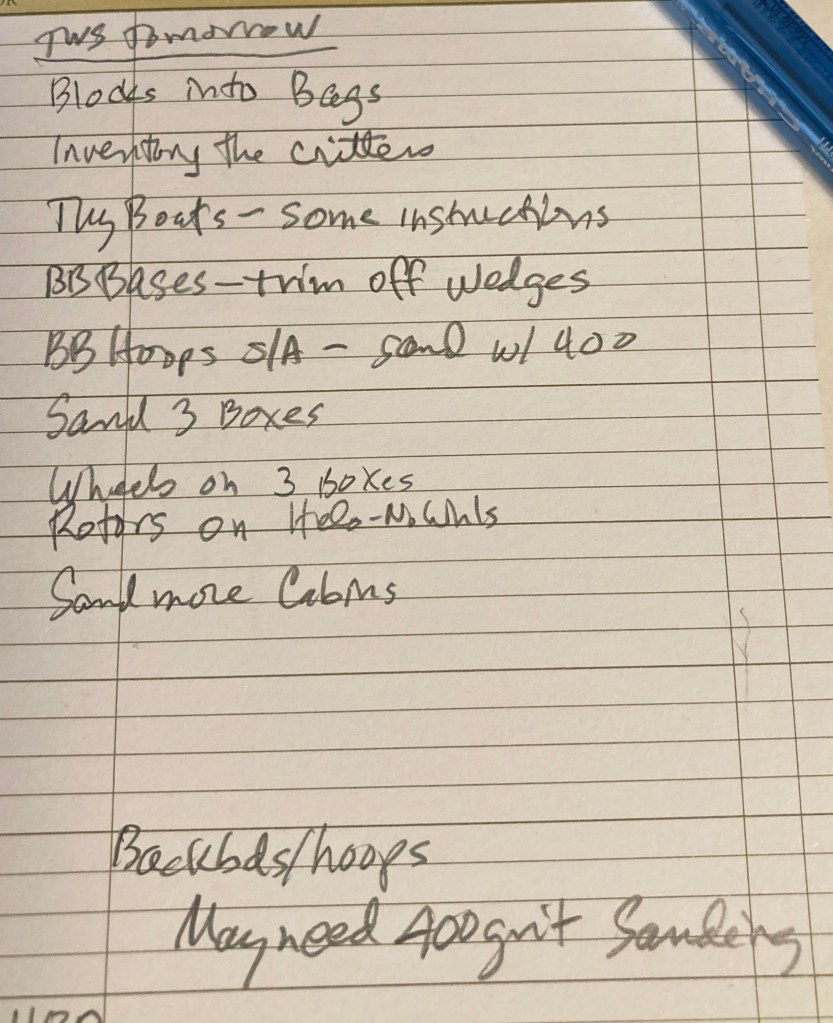 TWS Tomorrow
Blocks into Bags
Inventory the critters
Tug Boats - some instructions
BB Bases - trim off wedges
BB Hoops S/A - sand w/ 400
Sand 3 Boxes
Wheels on 3 boxes
Rotors on Helo - No Whls
Sand more Cabins
Backbds/hoops
May need 400 grit Sanding